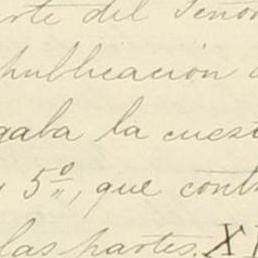 rte del Seño
publicación
gaba la cuest
5º, que cont
las partes. XI